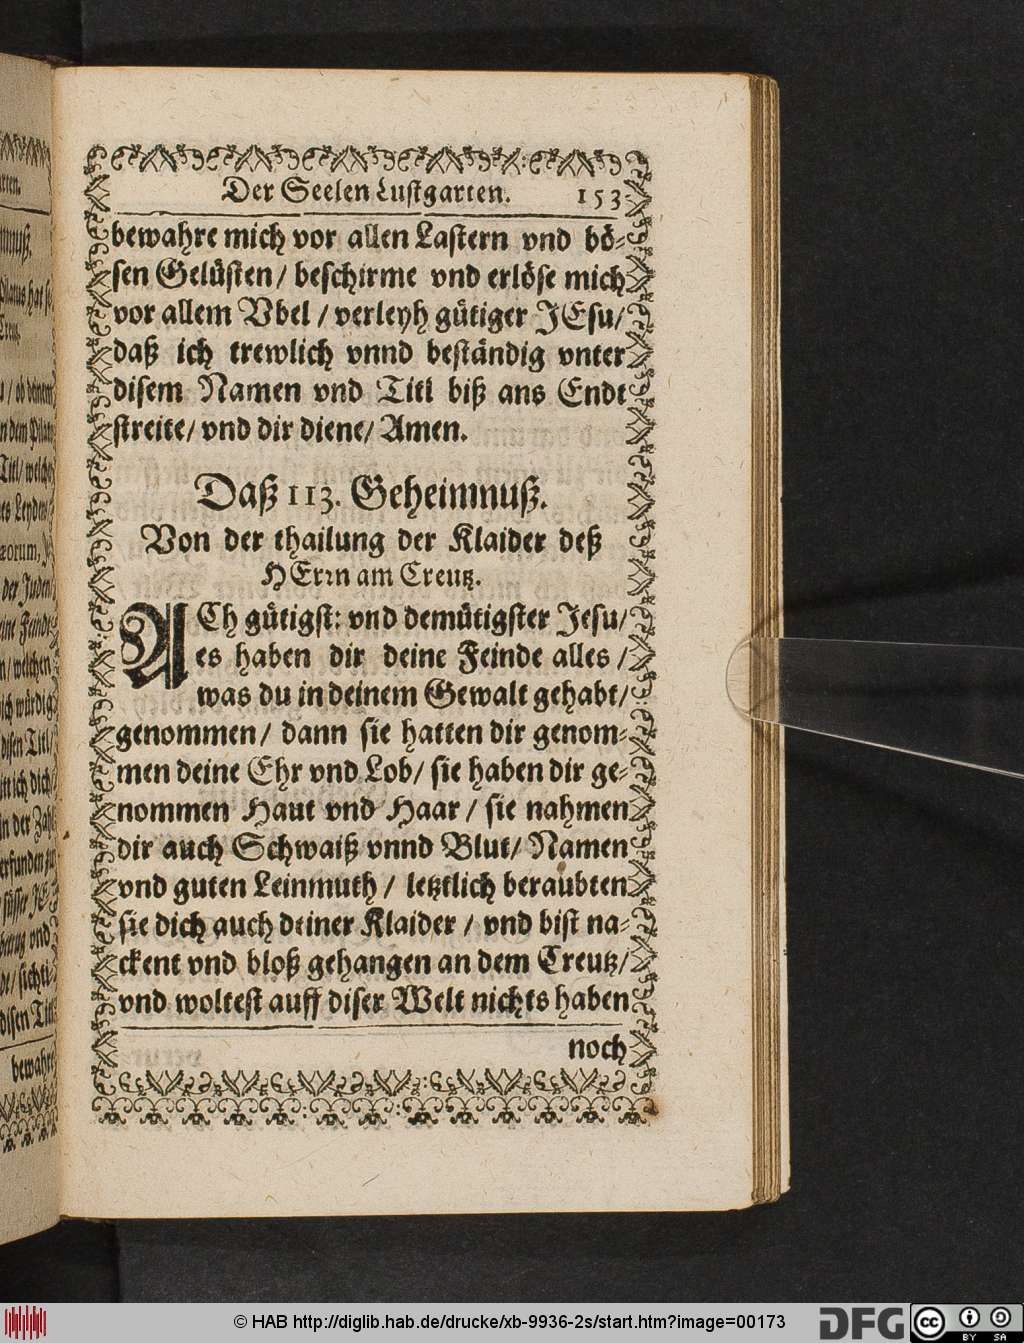 Der Seelen Lustgarten. 153
bewahre mich vor allen Lastern vnd bö-
sen Gelüsten/ beschirme vnd erlöse mich
vor allem Vbel / verleyh gütiger JEsu/
daß ich trewlich vnnd beständig vnter
disem Namen vnd Titl biß ans Endt
streite/ vnd dir diene/ Amen.
Daß 113. Geheimnuß.
Von der thailung der Klaider deß
HErrn am Creutz.
ACh gütigst: vnd demütigster Jesu/
es haben dir deine Feinde alles /
was du in deinem Gewalt gehabt/
genommen/ dann sie hatten dir genom-
men deine Ehr vnd Lob/ sie haben dir ge-
nommen Haut vnd Haar / sie nahmen
dir auch Schwaiß vnnd Blut/ Namen
vnd guten Leinmuth / letztlich beraubten
sie dich auch deiner Klaider / vnd bist na-
ckent vnd bloß gehangen an dem Creutz/
vnd woltest auff diser Welt nichts haben
noch
© HAB http://diglib.hab.de/drucke/xb-9936-2s/start.htm?image=00173
DFG
cc BY SA